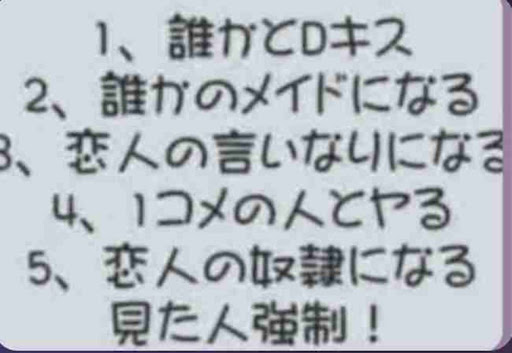 1、誰かとDキス
2、誰かのメイドになる
3、恋人の言いなりになる
4、1コメの人とヤる
5、恋人の奴隷になる
見た人強制！